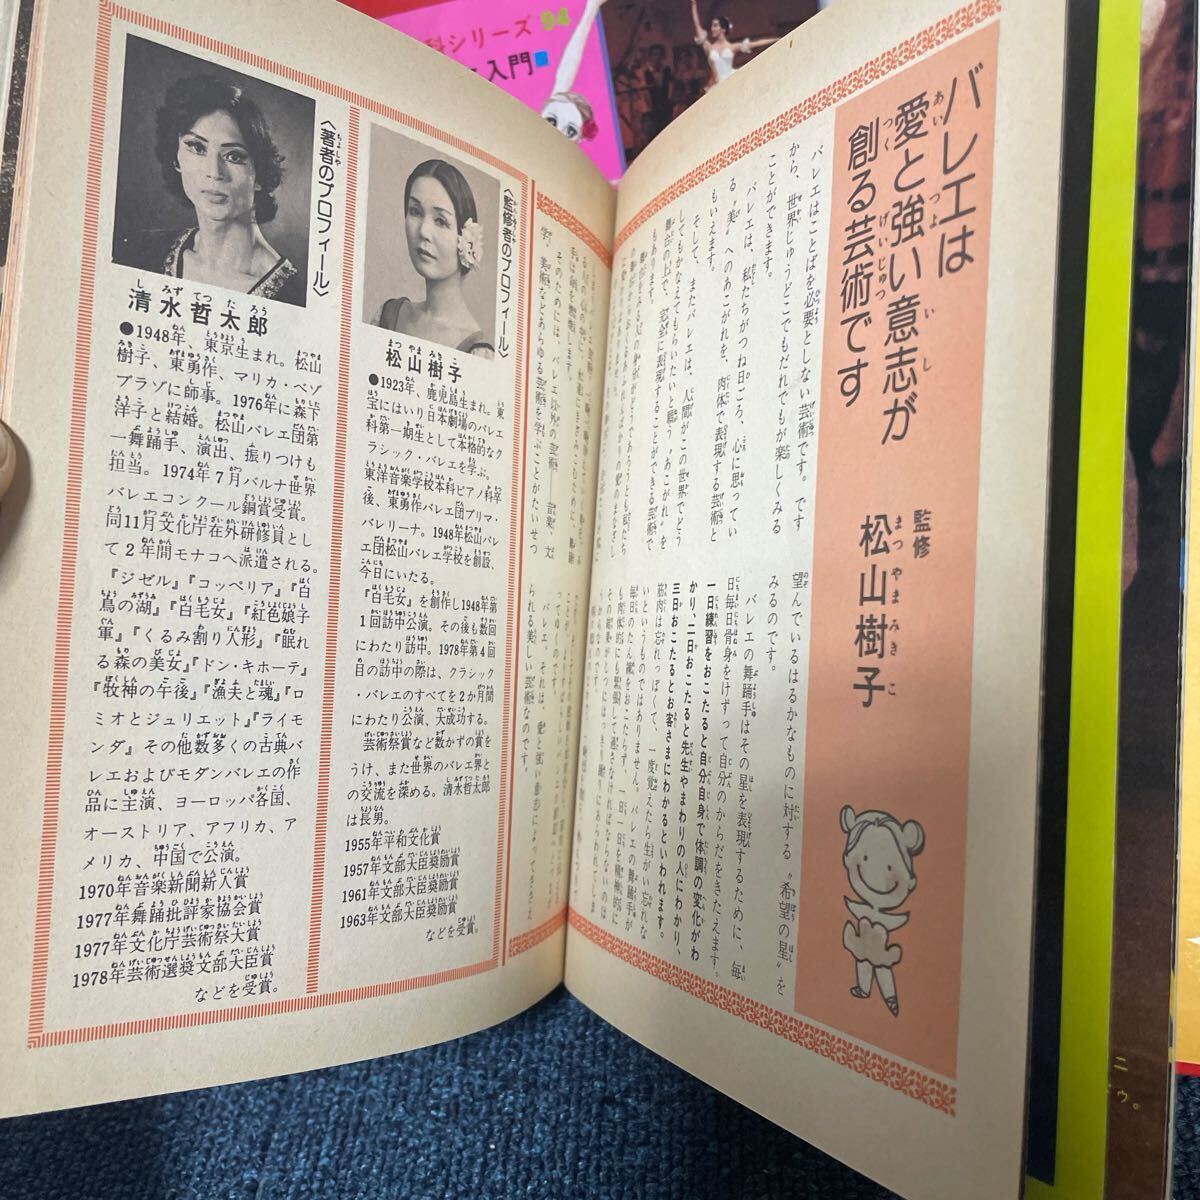 科シリーズ 94
入門
バレエは
愛と強い意志が
創る芸術です
監修 松山樹子
バレエはことばを必要としない芸術です。です
から、世界じゅうどこでもだれでもが楽しくみる
ことができます。
バレエは、私たちがつね日ごろ、心に思ってい
る〝美〟へのあこがれを、肉体で表現する芸術と
もいえます。
そして、またバレエは、人間がこの世界でどう
してもかなえてもらいたいと願う〝あこがれ〟を
舞台の上で、完全に表現することができる芸術で
もあります。
望んでいるはるかなものに対する〝希望の星〟を
みるのです。
バレエの舞踊手はその星を表現するために、毎
日毎日骨身をけずって自分のからだをきたえます。
一日練習をおこたると自分自身で体調の変化がわ
かり、二日おこたると先生やまわりの人にわかり、
三日おこたるとお客さまにわかるといわれます。
筋肉は忘れっぽくて、一度覚えたら生がい忘れな
いというものではありません。バレエの舞踊手が
毎日のたん練をおこたらず、一日一日を精神的に
も肉体的にも緊張して過さなければならないのは
そのためには、バレエ以外の芸術――音楽、文
学、美術などあらゆる芸術を学ぶことがたいせつ
バレエ、それは、愛と強い意志によって、ささえ
られる美しい芸術なのです。
〈監修者のプロフィール〉
松山樹子
●1923年、鹿児島生まれ。東
宝にはいり日本劇場のバレエ
科第一期生として本格的なク
ラシック・バレエを学ぶ。
東洋音楽学校本科ピアノ科卒
後、東勇作バレエ団プリマ・
バレリーナ。1948年松山バレ
エ団松山バレエ学校を創設、
今日にいたる。
『白毛女』を創作し1948年第
1回訪中公演。その後も数回
にわたり訪中。1978年第4回
目の訪中の際は、クラシック
・バレエのすべてを2か月間
にわたり公演、大成功する。
芸術祭賞など数かずの賞を
うけ、また世界のバレエ界と
の交流を深める。清水哲太郎
は長男。
1955年平和文化賞
1957年文部大臣奨励賞
1961年文部大臣奨励賞
1963年文部大臣奨励賞
などを受賞。
〈著者のプロフィール〉
清水哲太郎
●1948年、東京生まれ。松山
樹子、東勇作、マリカ・ベゾ
ブラゾに師事。1976年に森下
洋子と結婚。松山バレエ団第
一舞踊手、演出、振りつけも
担当。1974年7月バルナ世界
バレエコンクール銅賞受賞。
同11月文化庁在外研修員とし
て2年間モナコへ派遣される。
『ジゼル』『コッペリア』『白
鳥の湖』『白毛女』『紅色娘子
軍』『くるみ割り人形』『眠れ
る森の美女』『ドン・キホーテ』
『牧神の午後』『漁夫と魂』『ロ
ミオとジュリエット』『ライモ
ンダ』その他数多くの古典バ
レエおよびモダンバレエの作
品に主演、ヨーロッパ各国、
オーストリア、アフリカ、ア
メリカ、中国で公演。
1970年音楽新聞新人賞
1977年舞踊批評家協会賞
1977年文化庁芸術祭大賞
1978年芸術選奨文部大臣賞
などを受賞。